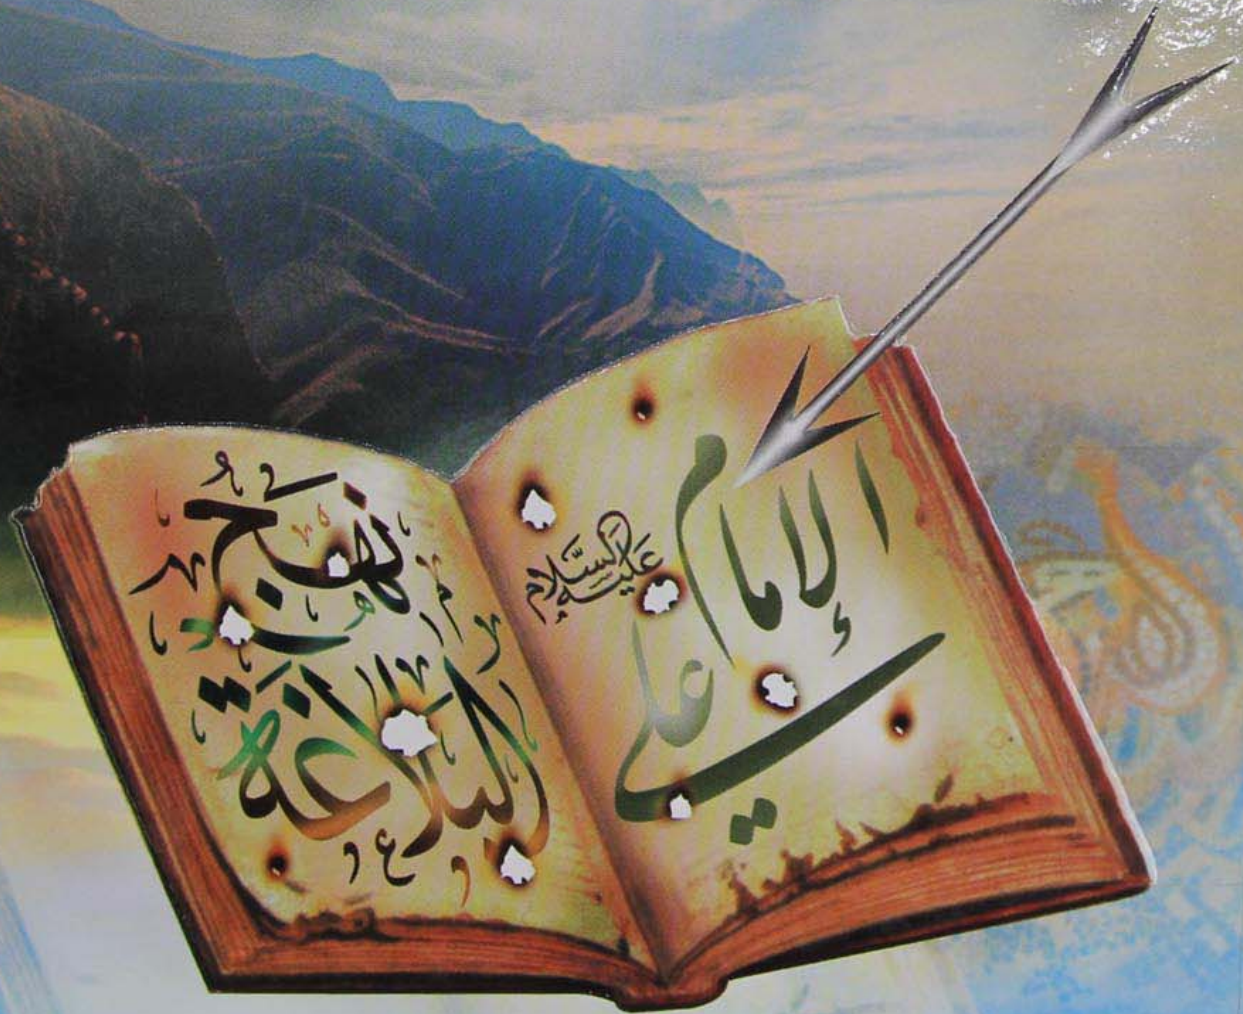 الإمام
علي
عَلَيْهِ السَّلَام
نَهْجُ
البَلَاغَة